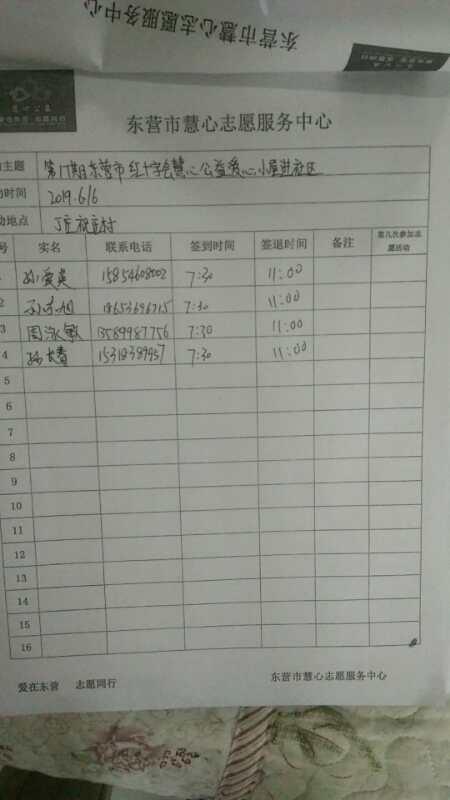 东营市慧心志愿服务中心
东营市慧心志愿服务中心
主题 第17期东营市红十字会慧心公益爱心小屋进社区
时间 2019.6/6
动地点 丁庄祝庄村
号 实名 联系电话 签到时间 签退时间 备注 第几次参加志愿活动
孙爱英 15854608002 7:30 11:00
2 孙东旭 18653696715 7:30 11:00
3 周泳敏 13589987756 7:30 11:00
4 孙 15318389957 7:30 11:00
5
6
7
8
9
10
11
12
13
14
15
16
爱在东营 志愿同行 东营市慧心志愿服务中心